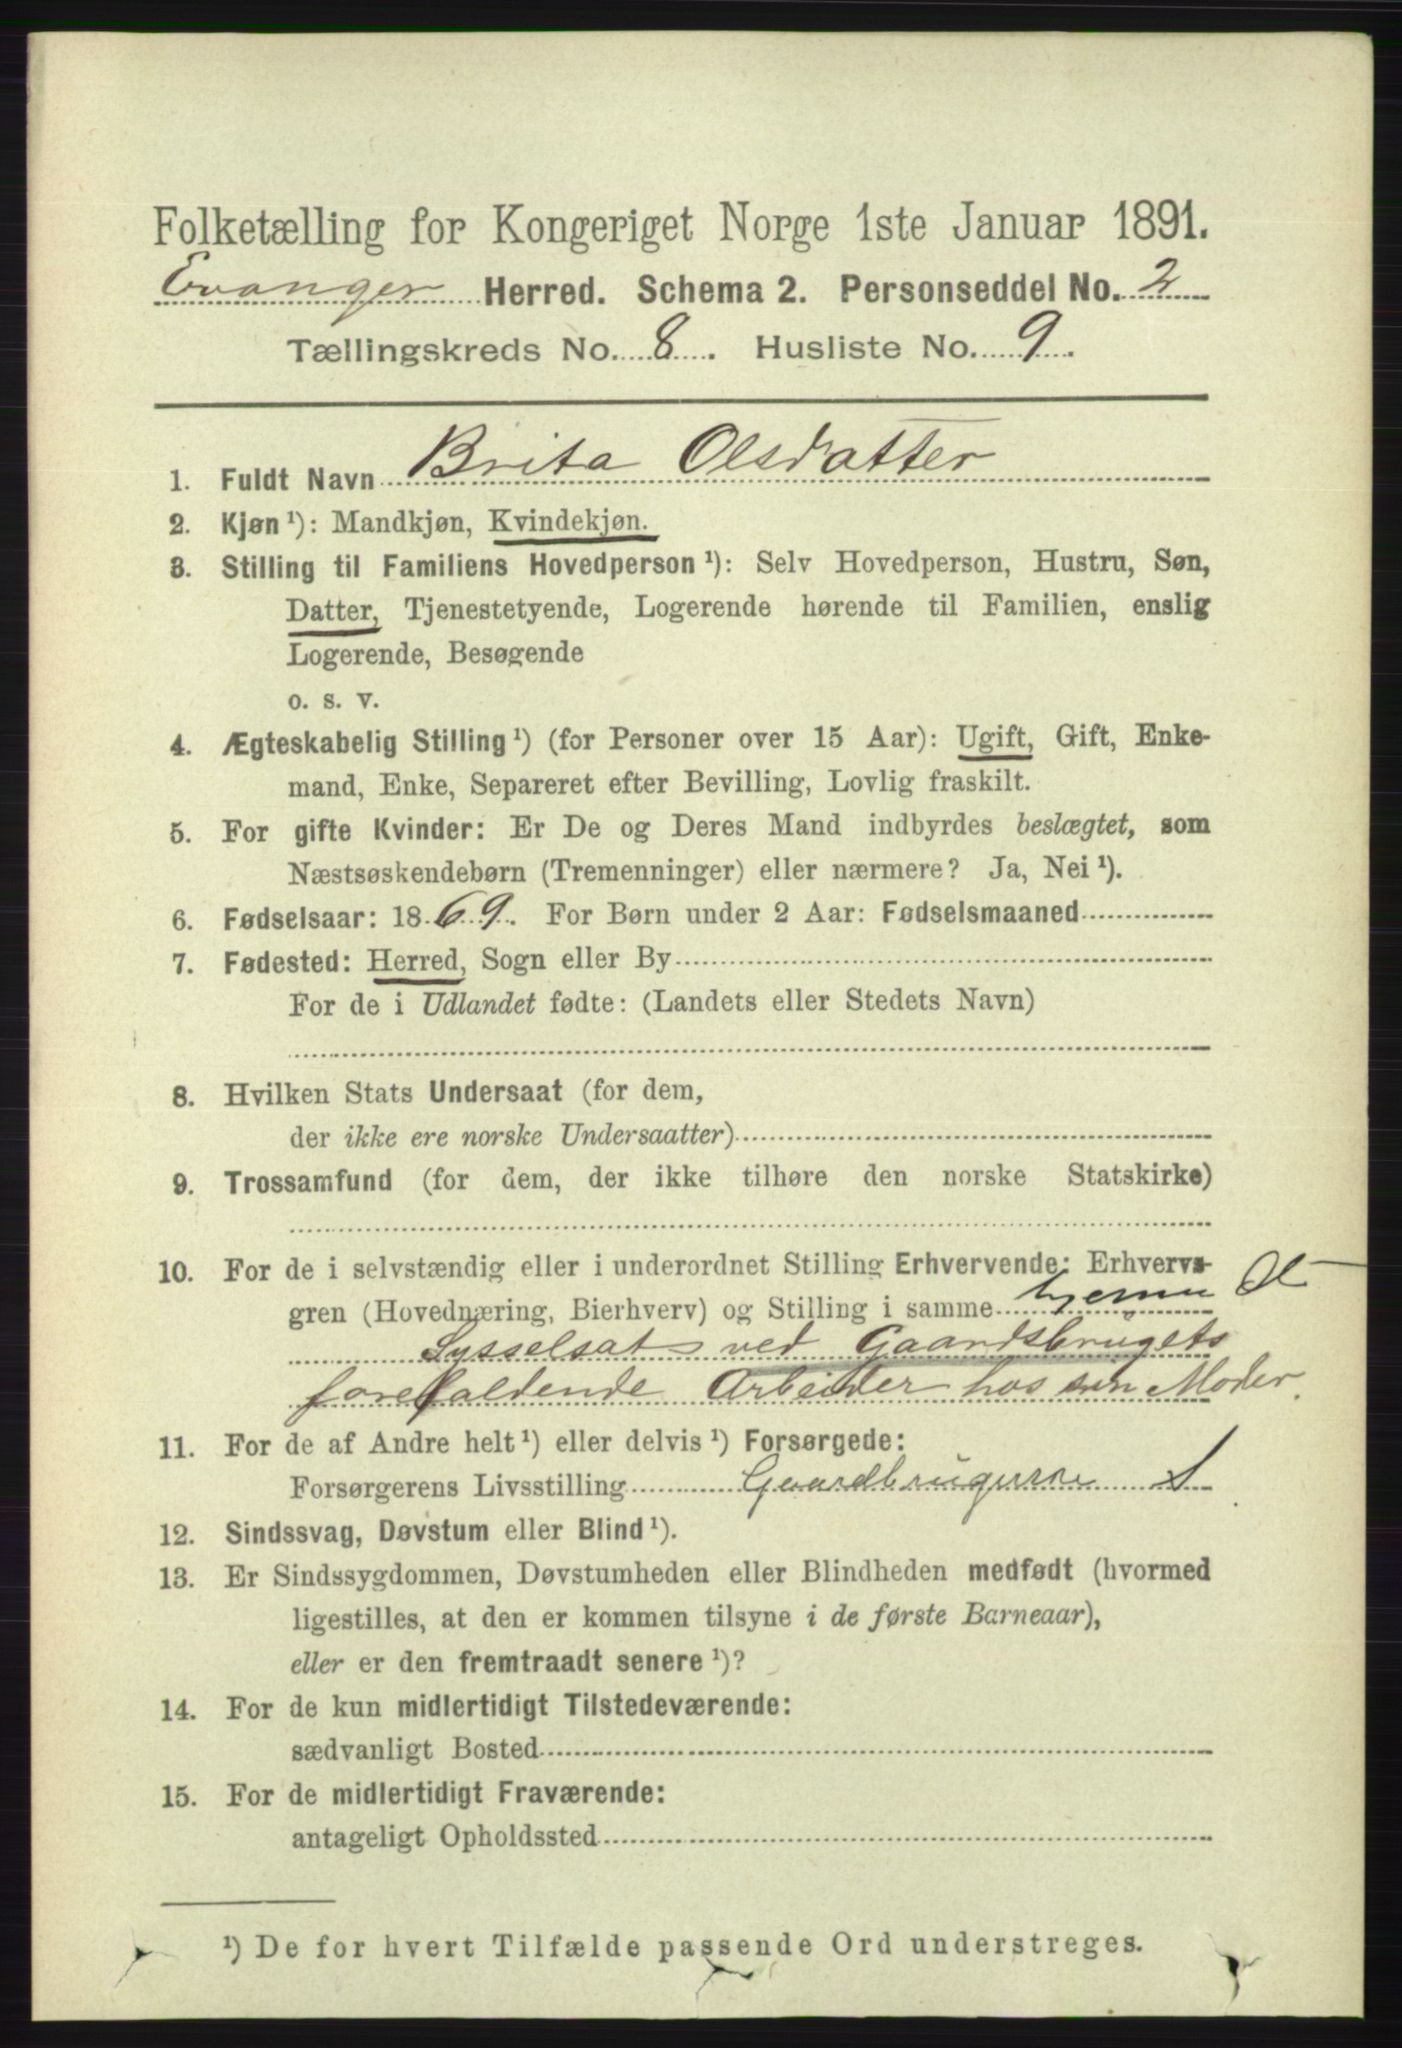 Folketælling for Kongeriget Norge 1ste Januar 1891.
Evanger Herred. Schema 2. Personseddel No. 2
Tællingskreds No. 8. Husliste No. 9.
1. Fuldt Navn Brita Olsdatter
2. Kjøn ¹): Mandkjøn, Kvindekjøn.
3. Stilling til Familiens Hovedperson ¹): Selv Hovedperson, Hustru, Søn,
Datter, Tjenestetyende, Logerende hørende til Familien, enslig
Logerende, Besøgende
o. s. v.
4. Ægteskabelig Stilling ¹) (for Personer over 15 Aar): Ugift, Gift, Enke-
mand, Enke, Separeret efter Bevilling, Lovlig fraskilt.
5. For gifte Kvinder: Er De og Deres Mand indbyrdes beslægtet, som
Næstsøskendebørn (Tremenninger) eller nærmere? Ja, Nei ¹).
6. Fødselsaar: 1869. For Børn under 2 Aar: Fødselsmaaned
7. Fødested: Herred, Sogn eller By
For de i Udlandet fødte: (Landets eller Stedets Navn)
8. Hvilken Stats Undersaat (for dem,
der ikke ere norske Undersaatter)
9. Trossamfund (for dem, der ikke tilhøre den norske Statskirke)
10. For de i selvstændig eller i underordnet Stilling Erhvervende: Erhvervs-
gren (Hovednæring, Bierhverv) og Stilling i samme hjemme
Sysselsat ved Gaardsbrugets
forefaldende Arbeider hos sin Moder.
11. For de af Andre helt ¹) eller delvis ¹) Forsørgede:
Forsørgerens Livsstilling Gaardbrugerske
12. Sindssvag, Døvstum eller Blind ¹).
13. Er Sindssygdommen, Døvstumheden eller Blindheden medfødt (hvormed
ligestilles, at den er kommen tilsyne i de første Barneaar),
eller er den fremtraadt senere ¹)?
14. For de kun midlertidigt Tilstedeværende:
sædvanligt Bosted
15. For de midlertidigt Fraværende:
antageligt Opholdssted
¹) De for hvert Tilfælde passende Ord understreges.